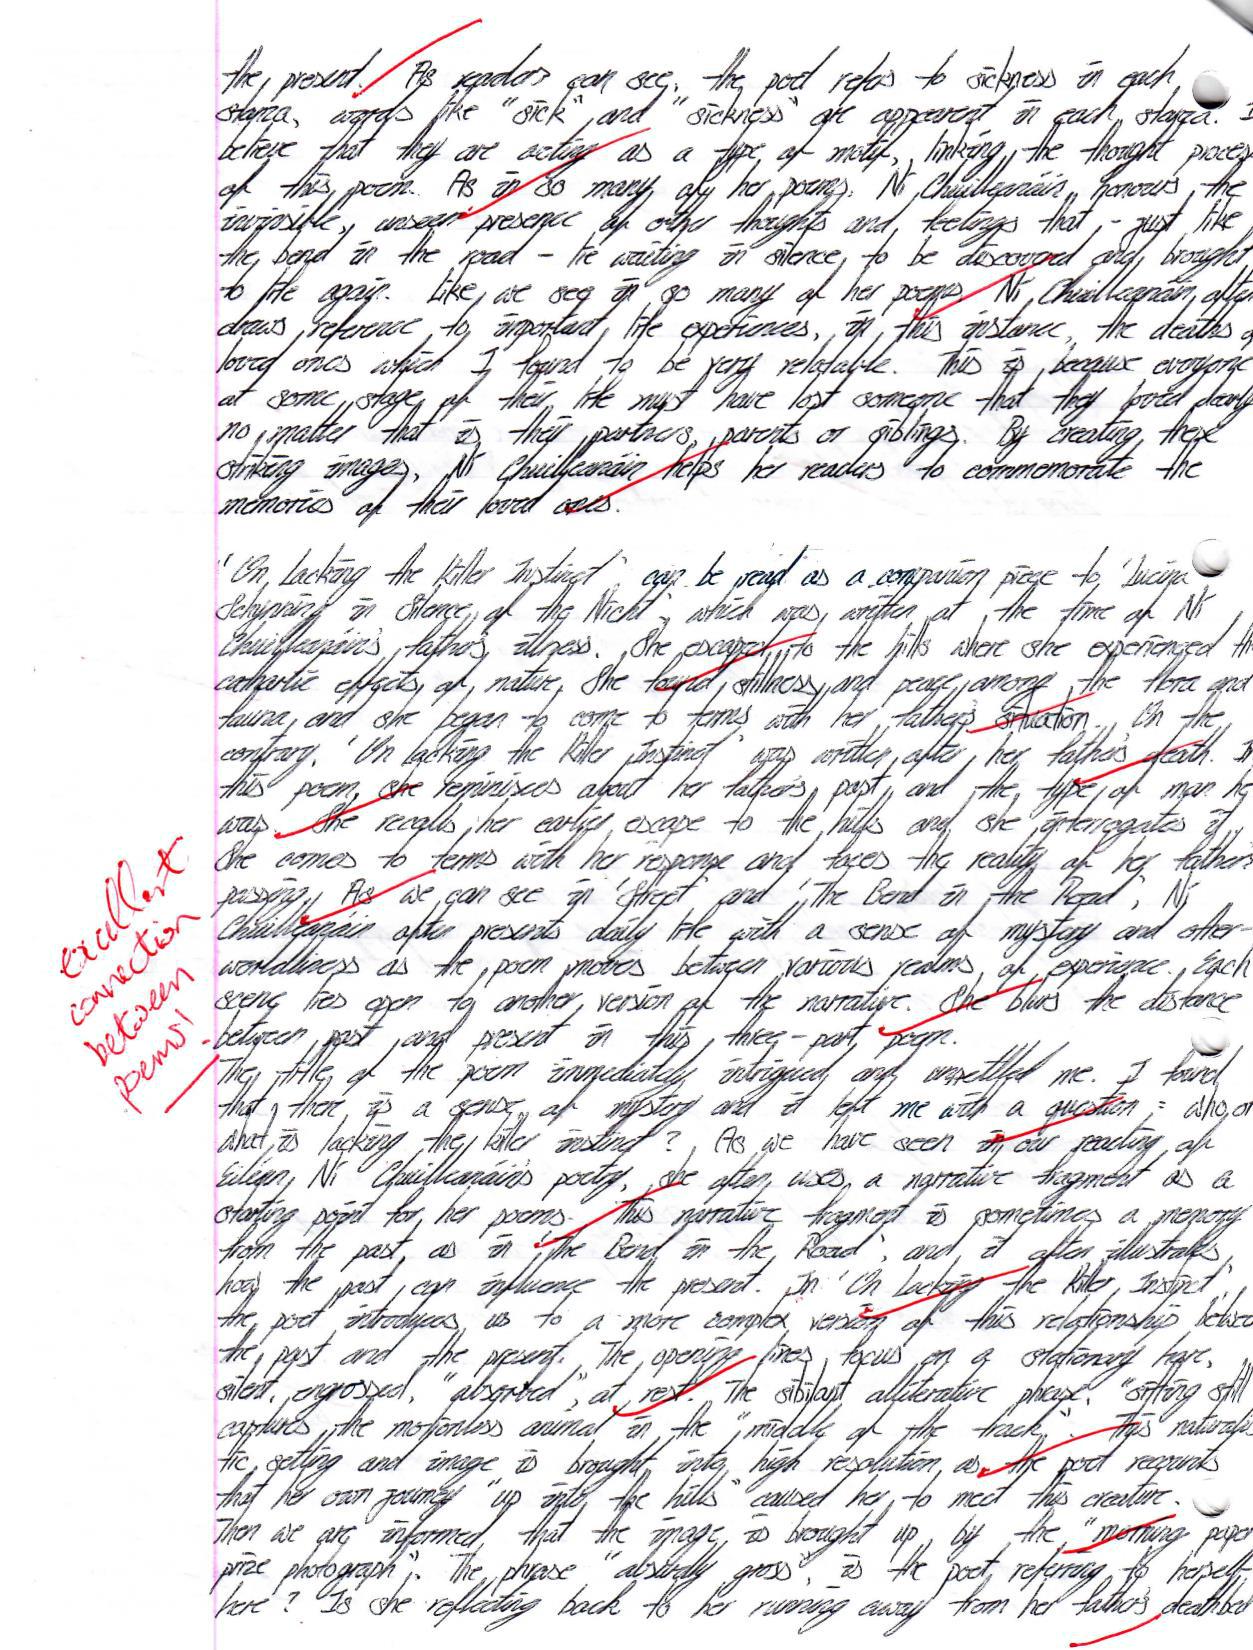 the present. As readers can see, the poet refers to sickness in each
stanza, words like "sick" and "sickness" are apparent in each stanza. I
believe that they are acting as a type of motif, linking the thought process
of this poem. As in so many of her poems, Ní Chuilleanáin honours the
invinsible, unseen presence of other thoughts and feelings that - just like
the bend in the road - lie waiting in silence, to be discovered and brought
to life again. Like we see in so many of her poems, Ní Chuilleanáin often
draws reference to important life experiences, in this instance, the deaths of
loved ones which I found to be very relatable. This is because everyone
at some stage of their life must have lost someone that they loved dearly
no matter that is their partners, parents or siblings. By creating these
striking images, Ní Chuilleanáin helps her readers to commemorate the
memories of their loved ones.
'On Lacking the Killer Instinct' can be read as a companion piece to 'Lucina
Schynning in Silence of the Nicht', which was written at the time of Ní
Chuilleanáin's father's illness. She escaped to the hills where she experienced the
cathartic effects of nature. She found stillness and peace among the flora and
fauna, and she began to come to terms with her father's situation. On the
contrary, 'On Lacking the Killer Instinct' was written after her father's death. In
this poem, she reminisces about her father's past and the type of man he
was. She recalls her earlier escape to the hills and she interrogates it.
She comes to terms with her response and faces the reality of her father's
passing. As we can see in 'Street' and 'The Bend in the Road', Ní
Chuilleanáin often presents daily life with a sense of mystery and other-
worldliness as the poem moves between various realms of experience. Each
scene lies open to another version of the narrative. She blurs the distance
between past and present in this three-part poem.
excellent
connection
between
poems!
The title of the poem immediately intrigued and unsettled me. I found
that there is a sense of mystery and it left me with a question : who or
what is lacking the killer instinct? As we have seen in our reading of
Eiléan Ní Chuilleanáin's poetry, she often uses a narrative fragment as a
starting point for her poems. This narrative fragment is sometimes a memory
from the past, as in 'The Bend in the Road', and it often illustrates
how the past can influence the present. In 'On Lacking the Killer Instinct',
the poet introduces us to a more complex version of this relationship between
the past and the present. The opening lines focus on a stationary hare,
silent, engrossed, "absorbed", at rest. The sibilant alliterative phrase, "sitting still"
captures the motionless animal in the "middle of the track". This naturalis-
tic setting and image is brought into high resolution as the poet recounts
that her own journey "up into the hills" caused her to meet this creature.
Then we are informed that the image is brought up by the "morning paper
prize photograph". The phrase "absurdly gross", is the poet referring to herself
here? Is she reflecting back to her running away from her father's deathbed